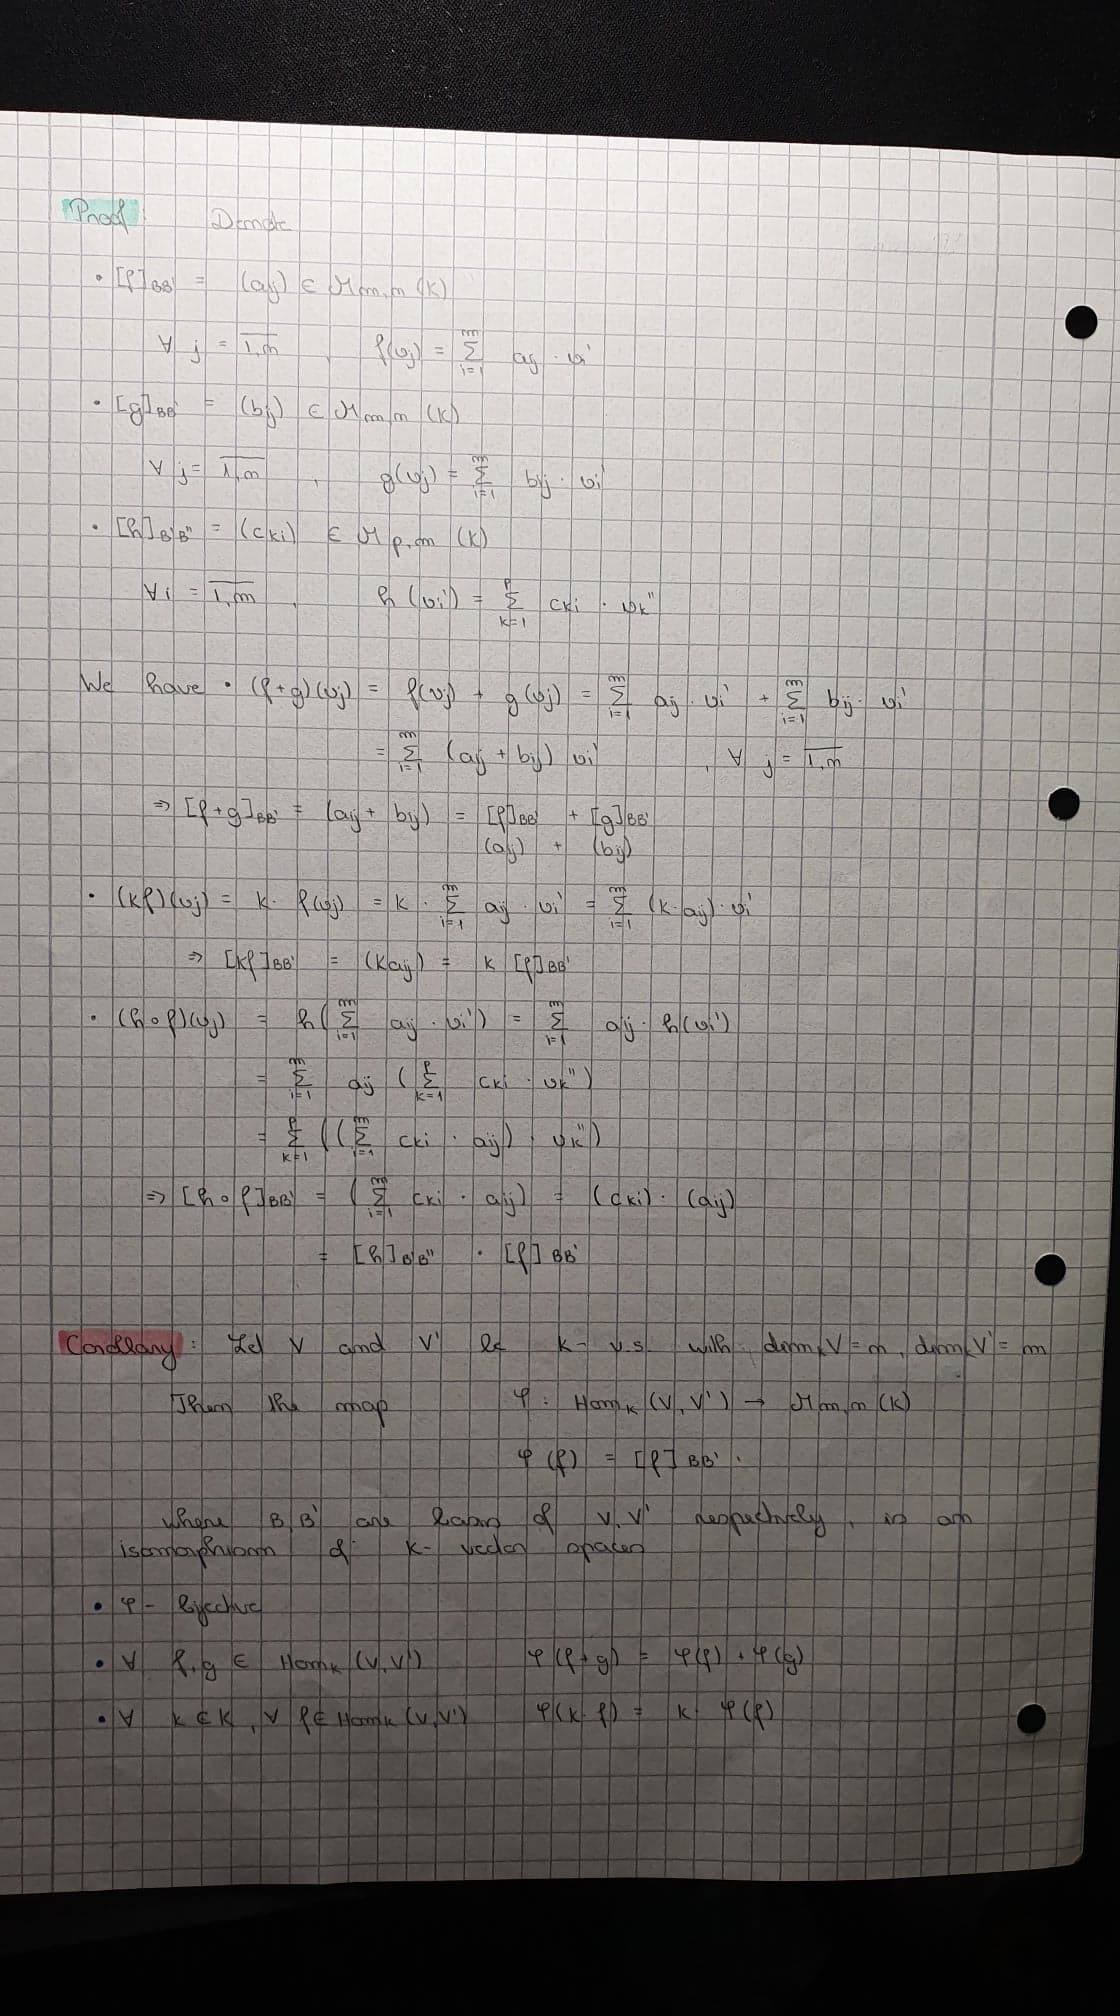 Proof: Denote
• [f]BB' = (aij) ∈ Mm,n (K)
∀ j = 1,n , f(vj) = ∑ᵐᵢ₌₁ aij · vi'
• [g]BB' = (bij) ∈ Mm,n (K)
∀ j = 1,n , g(vj) = ∑ᵐᵢ₌₁ bij · vi'
• [h]B'B" = (cki) ∈ Mp,m (K)
∀ i = 1,m , h(vi') = ∑ᵖₖ₌₁ cki · vk"
We have • (f+g)(vj) = f(vj) + g(vj) = ∑ᵐᵢ₌₁ aij · vi' + ∑ᵐᵢ₌₁ bij · vi'
= ∑ᵐᵢ₌₁ (aij + bij) vi' , ∀ j = 1,n
⇒ [f+g]BB' = (aij + bij) = [f]BB' + [g]BB'
(aij) + (bij)
• (kf)(vj) = k · f(vj) = k · ∑ᵐᵢ₌₁ aij · vi' = ∑ᵐᵢ₌₁ (k·aij) · vi'
⇒ [kf]BB' = (kaij) = k [f]BB'
• (h∘f)(vj) = h(∑ᵐᵢ₌₁ aij · vi') = ∑ᵐᵢ₌₁ aij · h(vi')
= ∑ᵐᵢ₌₁ aij (∑ᵖₖ₌₁ cki · vk")
= ∑ᵖₖ₌₁ ((∑ᵐᵢ₌₁ cki · aij) · vk")
⇒ [h∘f]BB' = (∑ᵐᵢ₌₁ cki · aij) = (cki) · (aij)
= [h]B'B" · [f]BB'
Corollary: Let V and V' be K- v.s. with dimkV = n, dimkV' = m
Then the map φ : HomK (V, V') → Mm,n (K)
φ (f) = [f]BB' .
where B, B' are bases of V, V' respectively, is an
isomorphism of K- vector spaces
• φ - bijective
• ∀ f,g ∈ HomK (V,V') φ(f+g) = φ(f) + φ(g)
• ∀ k ∈ K, ∀ f ∈ HomK (V,V') φ(k·f) = k · φ(f)